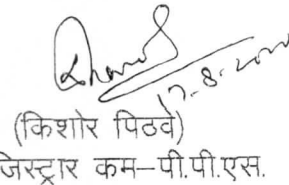 17.8.2000
(किशोर पिठवे)
जिस्ट्रार कम-पी.पी.एस.